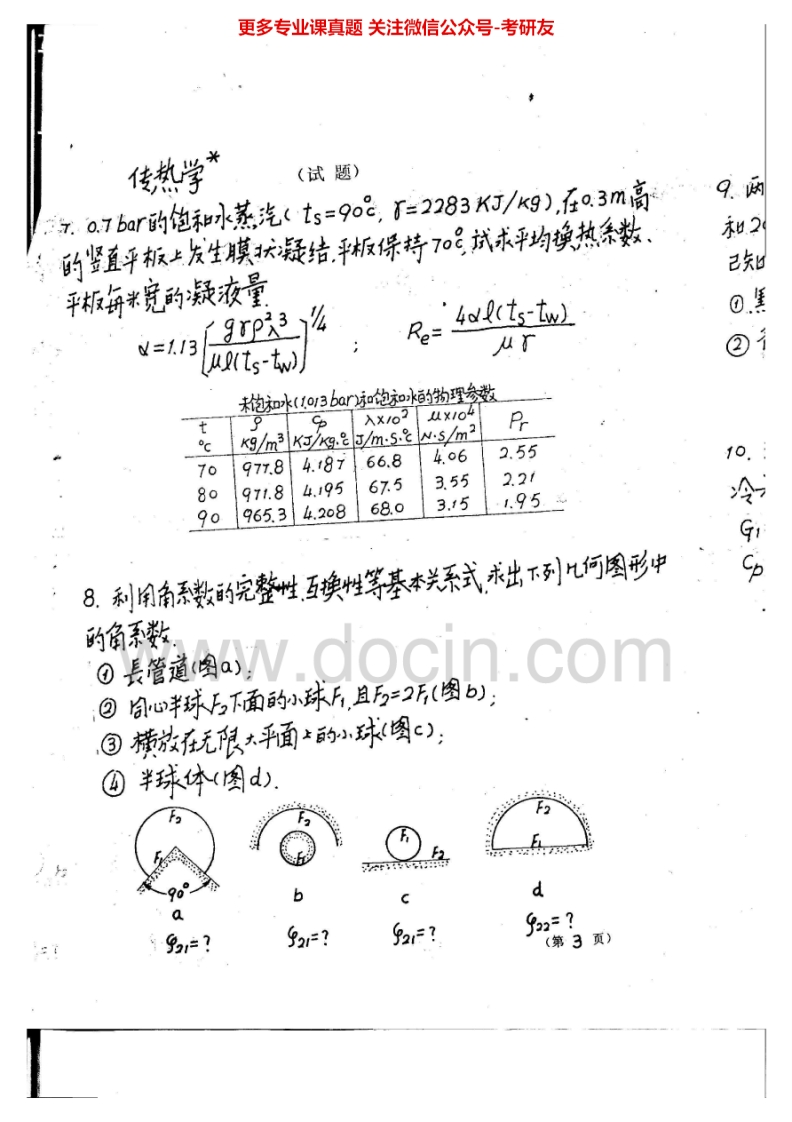 更多专业课真题 关注微信公众号-考研友
传热学*
(试 题)
7. 0.7bar的饱和水蒸汽(ts=90℃, r=2283KJ/Kg),在0.3m高
的竖直平板上发生膜状凝结,平板保持70℃,试求平均换热系数、
平板每米宽的凝液量.
α=1.13[grρ²λ³/μl(ts-tw)]^1/4 ; Re=4αl(ts-tw)/μr
未饱和水(1.013bar)和饱和水的物理参数
t ρ Cp λ×10² μ×10⁴ Pr
℃ Kg/m³ KJ/Kg.℃ J/m.s.℃ N.S/m²
70 977.8 4.187 66.8 4.06 2.55
80 971.8 4.195 67.5 3.55 2.21
90 965.3 4.208 68.0 3.15 1.95
8. 利用角系数的完整性,互换性等基本关系式,求出下列几何图形中
的角系数
① 長管道(图a);
② 同心半球F₂下面的小球F₁,且F₂=2F₁(图b);
③ 横放在无限大平面上的小球(图c);
④ 半球体(图d).
www.docin.com
F₂ F₁ 90° a φ₂₁=?
F₂ F₁ b φ₂₁=?
F₁ F₂ c φ₂₁=?
F₂ F₁ d φ₂₂=?
(第 3 页)
9. 两
和2
已知
①黑
②
10.
冷
G₁
Cp